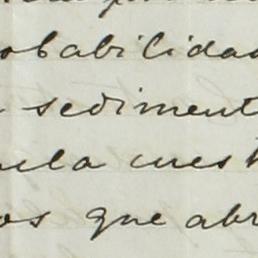 obabilidad
sediment
ella cuest
os que abr